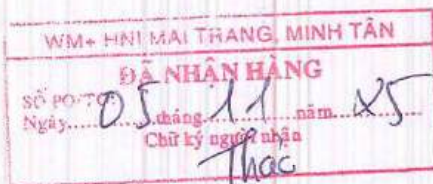 WM+ HNI MAI TRANG, MINH TÂN
ĐÃ NHẬN HÀNG
SỐ PO/TO
Ngày.....05.....tháng.....11.....năm.....25.....
Chữ ký người nhận
Thạc